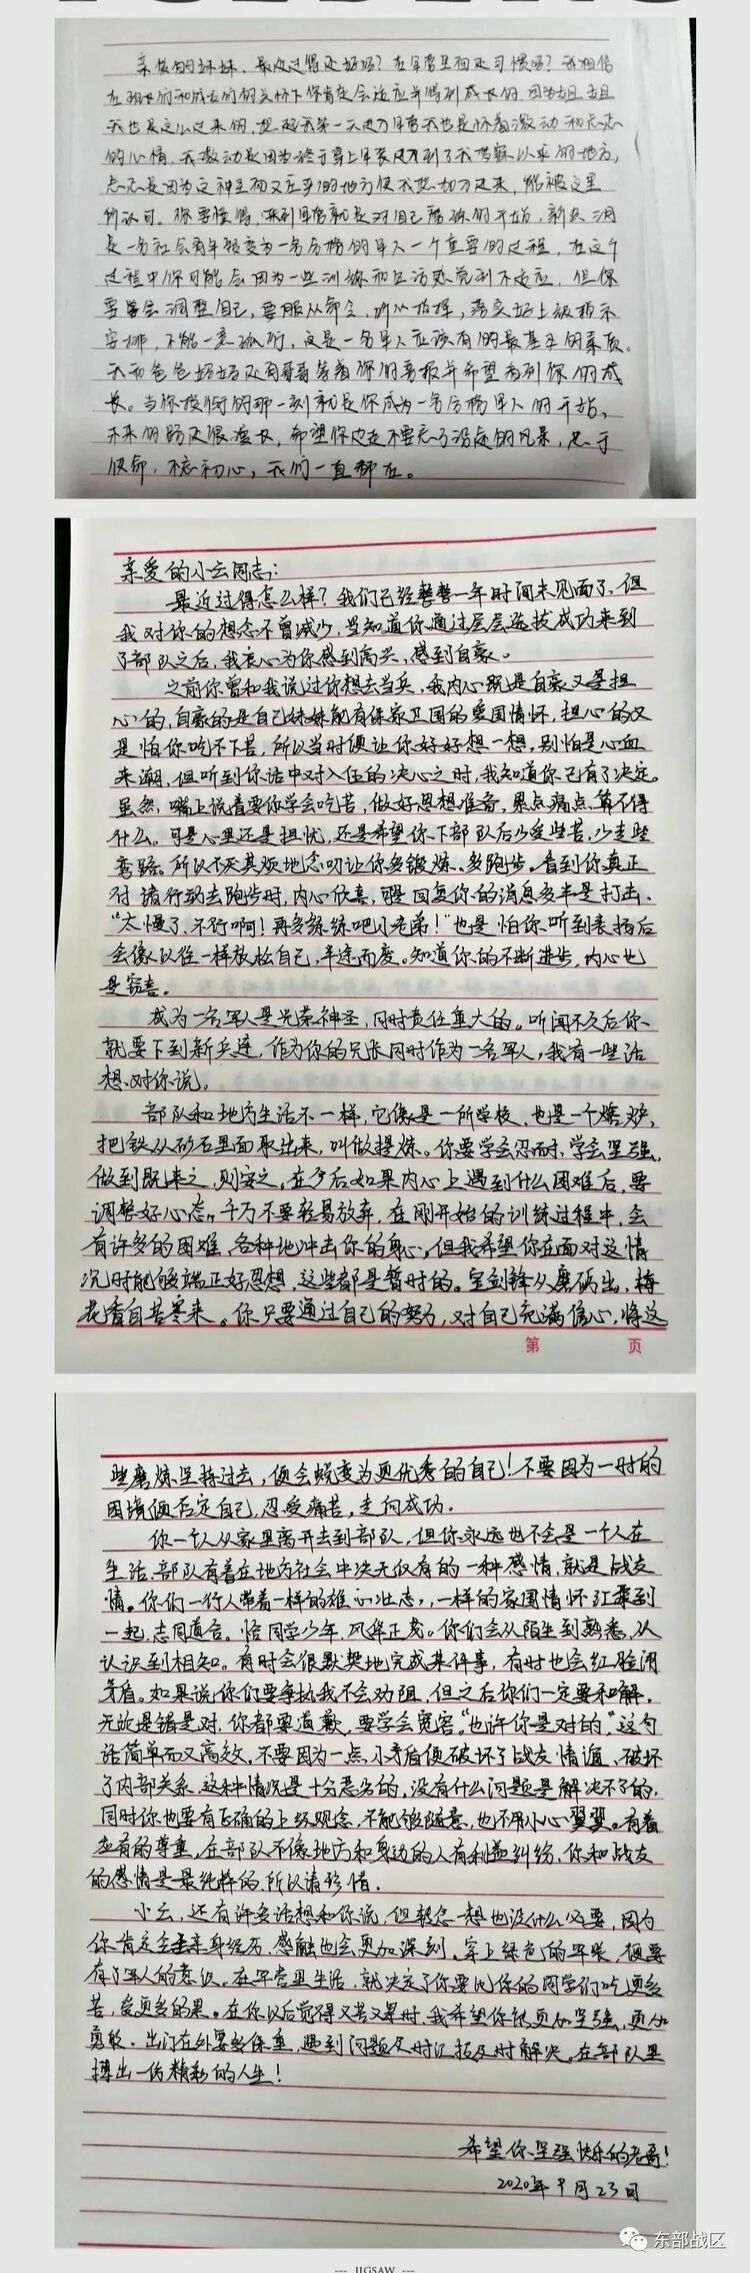 亲爱的妹妹，最近过得还好吗？在军营里面还习惯吗？我相信
在班长们和战友们的关怀下你肯定会适应并得到成长的，因为姐姐
我也是这么过来的，想起我第一天进入军营我也是怀着激动和忐忑
的心情，我激动是因为终于穿上军装来到了我梦寐以求的地方，
忐忑是因为这种生而又庄严的地方使我想加入进来，能被这里
所认可。你要懂得，来到军营就是对自己磨练的开始，新兵期
是一名社会青年转变为一名合格的军人一个重要的过程，在这个
过程中你可能会因为一些训练和生活感觉到不适应，但你
要学会调整自己，要服从命令，听从指挥，落实好上级指示
安排，不能一意孤行，这是一名军人应该有的最基本的素质。
我和爸爸妈妈还有哥哥等着你的喜报并希望看到你的成
长。当你授衔的那一刻就是你成为一名合格军人的开始，
未来的路还很漫长，希望你也走不要忘了沿途的风景，忠于
使命，不忘初心，我们一直都在。
亲爱的小云同志：
最近过得怎么样？我们已经整整一年时间未见面了，但
我对你的想念不曾减少，当知道你通过层层选拔成功来到
了部队之后，我衷心为你感到高兴，感到自豪。
之前你曾和我说过你想去当兵，我内心既是自豪又是担
心的，自豪的是自己妹妹能有保家卫国的爱国情怀，担心的又
是怕你吃不下苦，所以当时便让你好好想一想，别怕是心血
来潮，但听到你话中对入伍的决心之时，我知道你已有了决定。
虽然，嘴上说着要你学会吃苦，做好思想准备，累点痛点，算不得
什么。可是心里还是担忧，还是希望你下部队后少受些苦，少走些
弯路。所以不厌其烦地念叨让你多锻炼、多跑步。看到你真正
付诸行动去跑步时，内心欣喜，可是回复你的消息多半是打击，
“太慢了，不行啊！再多练练吧小老弟！”也是怕你听到表扬后
会像以往一样放松自己，半途而废。知道你的不断进步，内心也
是窃喜。
成为一名军人是光荣神圣，同时责任重大的。听闻不久后你
就要下到新兵连，作为你的兄长同时作为一名军人，我有一些话
想对你说。
部队和地方生活不一样，它像是一所学校，也是一个熔炉，
把铁从矿石里面取出来，叫做提炼。你要学会忍耐，学会坚强，
做到既来之，则安之，在今后如果内心上遇到什么困难后，要
调整好心态，千万不要轻易放弃，在刚开始的训练过程中，会
有许多的困难，各种地冲击你的身心，但我希望你在面对这情
况时能够端正好思想，这些都是暂时的。宝剑锋从磨砺出，梅
花香自苦寒来。你只要通过自己的努力，对自己充满信心，将这
第 页
些磨炼坚持过去，便会蜕变为更优秀的自己！不要因为一时的
困境便否定自己，忍受痛苦，走向成功。
你一个人从家里离开去到部队，但你永远也不会是一个人在
生活，部队有着在地方社会中决无仅有的一种感情，就是战友
情。你们一行人带着一样的雄心壮志，一样的家国情怀汇聚到
一起，志同道合。恰同学少年，风华正茂。你们会从陌生到熟悉，从
认识到相知。有时会很默契地完成某件事，有时也会红脸闹
矛盾。如果说你们要争执我不会劝阻，但之后你们一定要和解，
无论是错是对，你都要道歉，要学会宽容，“也许你是对的”，这句
话简单而又高效，不要因为一点小矛盾便破坏了战友情谊、破坏
了内部关系，这种情况是十分恶劣的，没有什么问题是解决不了的，
同时你也要有正确的上级观念，不能够随意，也不用小心翼翼。有着
应有的尊重，在部队不像地方和身边的人有利益纠纷，你和战友
的感情是最纯粹的，所以请珍惜。
小云，还有许多话想和你说，但转念一想也没什么必要，因为
你肯定会亲身经历，感触也会更加深刻，穿上绿色的军装，便要
有了军人的意识。在军营里生活，就决定了你要比你的同学们吃更多
苦，受更多的累。在你以后觉得又苦又累时，我希望你能更加坚强，更加
勇敢，出门在外要多保重，遇到问题及时汇报及时解决。在部队里
搏出一份精彩的人生！
希望你坚强快乐的老哥！
2020年9月23日
东部战区
--- JIGSAW ---